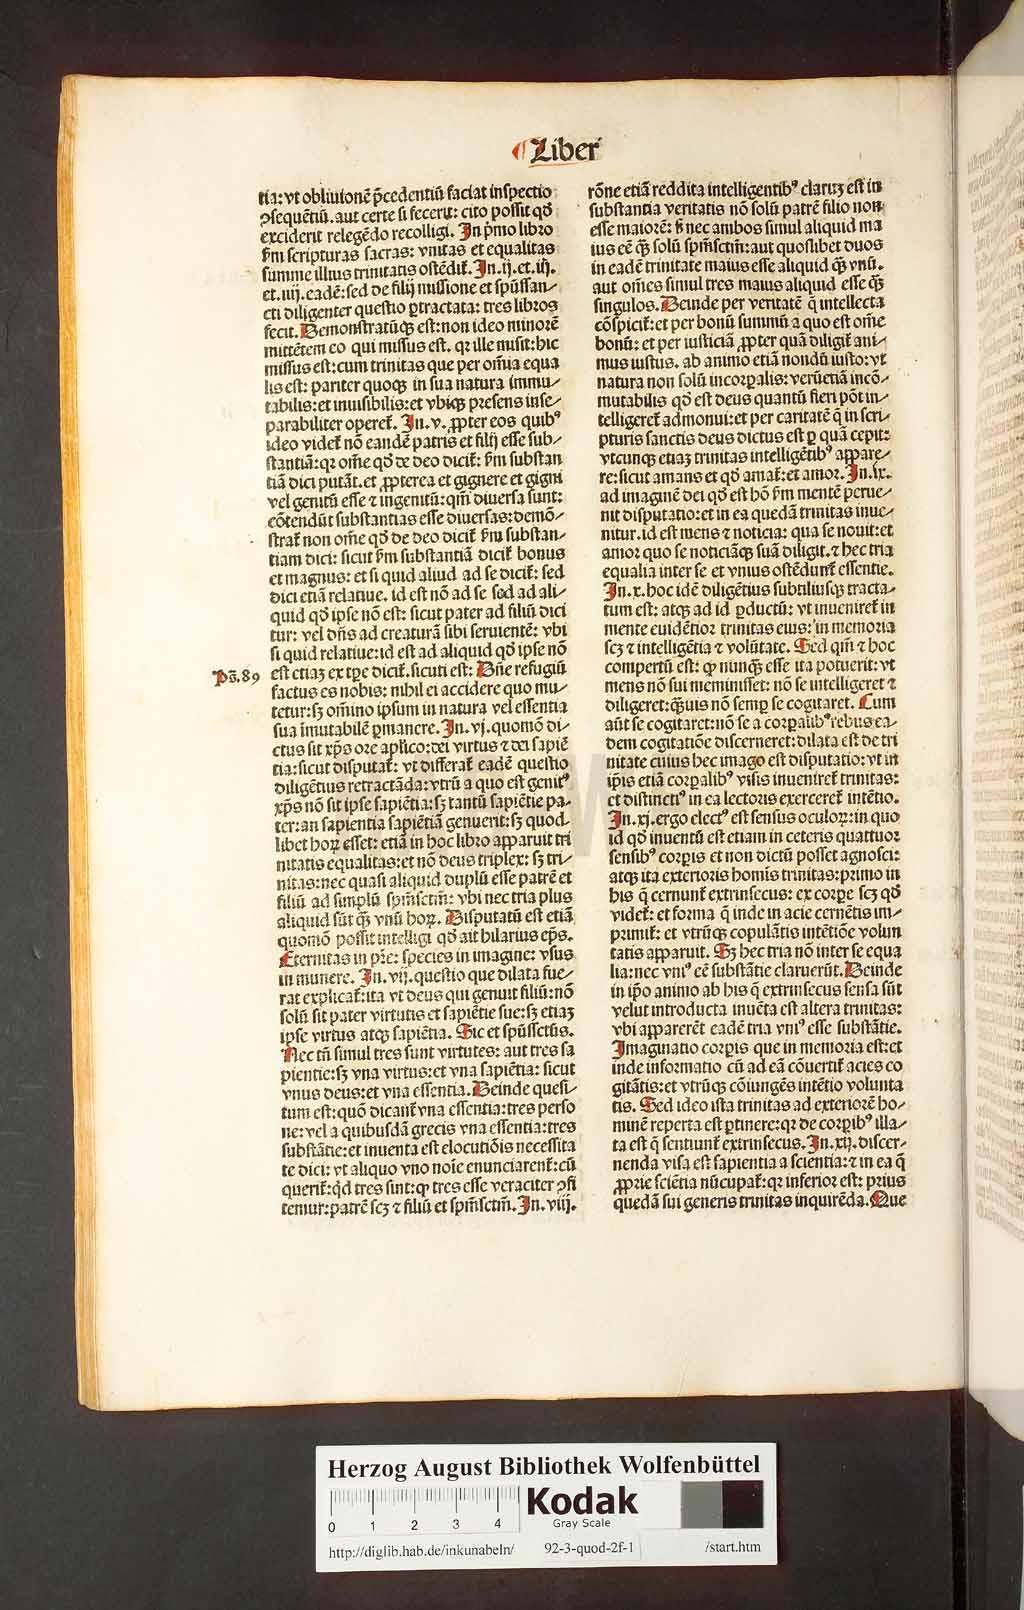 ¶ Liber
tia: vt obliuionē p̄cedentiū faciat inspectio
ꝯsequētiū. aut certe si fecerit: cito possit qd̄
exciderit relegēdo recolligi. In p̄mo libro
ẜm scripturas sacras: vnitas et equalitas
summe illius trinitatis ostēdit᷑. In .ij. et .iij.
et .iiij. eadē: sed de filij missione et spūssan-
cti diligenter questio ꝑtractata: tres libros
fecit. Demonstratūqꝫ est: non ideo minorē
mittētem eo qui missus est. qꝛ ille misit: hic
missus est: cum trinitas que per om̄ia equa
lis est: pariter quoqꝫ in sua natura immu-
tabilis: et inuisibilis: et vbiqꝫ presens inse-
parabiliter operet᷑. In .v. ꝓpter eos quibꝰ
ideo videt᷑ nō eandē patris et filij esse sub-
stantiā: qꝛ om̄e qd̄ de deo dicit᷑: ẜm substan
tiā dici putāt. et ꝓpterea et gignere et gigni
vel genitū esse ⁊ ingenitū: qm̄ diuersa sunt:
cōtendūt substantias esse diuersas: demō-
strat᷑ non om̄e qd̄ de deo dicit᷑ ẜm substan-
tiam dici: sicut ẜm substantiā dicit᷑ bonus
et magnus: et si quid aliud ad se dicit᷑: sed
dici etiā relatiue. id est nō ad se sed ad ali-
quid qd̄ ipse nō est: sicut pater ad filiū dici
tur: vel dn̄s ad creaturā sibi seruientē: vbi
si quid relatiue: id est ad aliquid qd̄ ipse nō
est etiaꝫ ex tp̄e dicit᷑. sicuti est: Dn̄e refugiū
factus es nobis: nihil ei accidere quo mu-
tetur: sꝫ om̄ino ipsum in natura vel essentia
sua īmutabilē ꝑmanere. In .vj. quomō di-
ctus sit xp̄s ore apl̄ico: dei virtus ⁊ dei sapiē
tia: sicut disputat᷑: vt differat᷑ eadē questio
diligētius retractāda: vtrū a quo est genitꝰ
xp̄s nō sit ipse sapiētia: sꝫ tantū sapiētie pa-
ter: an sapientia sapiētiā genuerit: sꝫ quod-
libet hoꝝ esset: etiā in hoc libro apparuit tri
nitatis equalitas: et nō deus triplex: sꝫ tri-
nitas: nec quasi aliquid duplū esse patrē et
filiū ad simplū spm̄sctm̄: vbi nec tria plus
aliquid sūt qꝫ̄ vnū hoꝝ. Disputatū est etiā
quomō possit intelligi qd̄ ait hilarius ep̄s.
Eternitas in p̄re: species in imagine: vsus
in munere. In .vij. questio que dilata fue-
rat explicat᷑: ita vt deus qui genuit filiū: nō
solū sit pater virtutis et sapiētie sue: sꝫ etiaꝫ
ipse virtus atqꝫ sapiētia. Sic et spūssctūs.
Nec tn̄ simul tres sunt virtutes: aut tres sa
pientie: sꝫ vna virtus: et vna sapiētia: sicut
vnus deus: et vna essentia. Deinde quesi-
tum est: quō dicant᷑ vna essentia: tres perso
ne: vel a quibusdā grecis vna essentia: tres
substātie: et inuenta est elocutiōis necessita
te dici: vt aliquo vno noīe enunciarent᷑: cū
querit᷑: qd̄ tres sint: qꝫ tres esse veraciter ꝯfi
temur: patrē scꝫ ⁊ filiū et spm̄sctm̄. In .viij.
Ps̄. 89
rōne etiā reddita intelligentibꝰ claruit est in
substantia veritatis nō solū patrē filio non
esse maiorē: sꝫ nec ambos simul aliquid ma
ius eē qꝫ̄ solū spm̄sctm̄: aut quoslibet duos
in eadē trinitate maius esse aliquid qꝫ̄ vnū.
aut om̄es simul tres maius aliquid esse qꝫ̄
singulos. Deinde per veritatē q̄ intellecta
cōspicit᷑: et per bonū summū a quo est om̄e
bonū: et per iusticiā ꝓpter quā diligit᷑ ani-
mus iustus. ab animo etiā nondū iusto: vt
natura non solū incorꝑalis: verūetiā incō-
mutabilis qd̄ est deus quantū fieri pōt in-
telligeret᷑ admonui: et per caritatē q̄ in scri-
pturis sanctis deus dictus est ꝑ quā cepit:
vtcunqꝫ etiaꝫ trinitas intelligētibꝰ appare-
re: sicut amans et qd̄ amat᷑: et amor. In .ix.
ad imaginē dei qd̄ est hō ẜm mentē perue-
nit disputatio: et in ea quedā trinitas inue-
nitur. id est mens ⁊ noticia: qua se nouit: et
amor quo se noticiāqꝫ suā diligit. ⁊ hec tria
equalia inter se et vnius ostēdunt᷑ essentie.
In .x. hoc idē diligētius subtiliusqꝫ tracta-
tum est: atqꝫ ad id ꝑductū: vt inueniret᷑ in
mente euidētior trinitas eius: in memoria
scꝫ ⁊ intelligētia ⁊ volūtate. Sed qm̄ ⁊ hoc
compertū est: qꝫ nunqꝫ̄ esse ita potuerit: vt
mens nō sui meminisset: nō se intelligeret ⁊
diligeret: qꝫ̄uis nō semꝑ se cogitaret. Cum
aūt se cogitaret: nō se a corꝑalibꝰ rebus ea-
dem cogitatiōe discerneret: dilata est de tri
nitate cuius hec imago est disputatio: vt in
ip̄is etiā corꝑalibꝰ visis inueniret᷑ trinitas:
et distinctiꝰ in ea lectoris exerceret᷑ intētio.
In .xj. ergo electꝰ est sensus oculoꝝ: in quo
id qd̄ inuentū est etiam in ceteris quattuor
sensibꝰ corꝑis et non dictū posset agnosci:
atqꝫ ita exterioris homīs trinitas: primo in
his q̄ cernunt᷑ extrinsecus: ex corꝑe scꝫ qd̄
videt᷑: et forma q̄ inde in acie cernētis im-
primit᷑: et vtrūqꝫ copulātis intētiōe volun
tatis apparuit. Sꝫ hec tria nō inter se equa
lia: nec vniꝰ eē substātie claruerūt. Deinde
in ip̄o animo ab his q̄ extrinsecus sensa sūt
velut introducta inuēta est altera trinitas:
vbi apparerēt eadē tria vniꝰ esse substātie.
Imaginatio corꝑis que in memoria est: et
inde informatio cū ad eā cōuertit᷑ acies co
gitātis: et vtrūqꝫ cōiungēs intētio volunta
tis. Sed ideo ista trinitas ad exteriorē ho-
minē reperta est ꝑtinere: qꝛ de corꝑibꝰ illa-
ta est q̄ sentiunt᷑ extrinsecus. In .xij. discer-
nenda visa est sapientia a scientia: ⁊ in ea q̄
ꝓprie sciētia nūcupat᷑: qꝛ inferior est: prius
quedā sui generis trinitas inquirēda. Que
Herzog August Bibliothek Wolfenbüttel
0 1 2 3 4
Kodak
Gray Scale
http://diglib.hab.de/inkunabeln/ 92-3-quod-2f-1 /start.htm